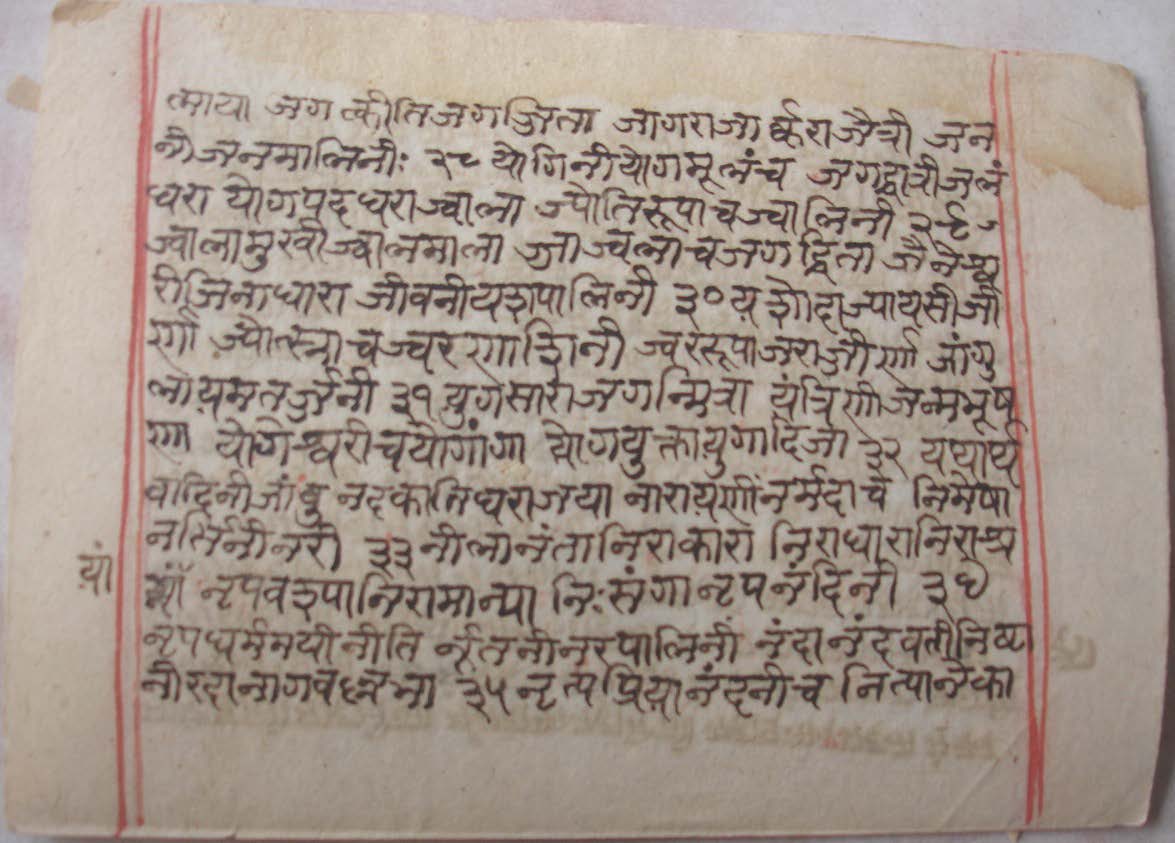 त्माया जगत्कीतिजगज्जिता जागराजार्ककराजैत्री जन
नीजनमालिनीः २८ योगिनीयोगमूलंच जगद्धात्रीजलं
धरा योगपदधराज्वाला ज्योतिरूपाचज्वालिनी २९
ज्वालामुखीज्वालमाला जाज्वलाचजगद्धिता जैनेश्व
रीजिनाधारा जीवनीयशपालिनी ३० यशोदाज्यायसीजी
र्णा ज्योत्स्नाचज्वरणाशिनी ज्वररूपाजराजीर्णा जांगु
लायमतर्जनी ३१ युगसाराजगन्मित्रा यंत्रिणीजन्मभूष
णा योगेश्वरीचयोगांगा योगयुक्तायुगादिजा ३२ यथार्थ
वादिनीजांबुनदकांतिधराजया नारायणीनर्मदाच निमेषा
नर्तिनीनरी ३३ नीलानंतानिराकारा निराधारानिराश्र
यां
नृपवश्पानिरामान्या निःसंगानृपनंदिनी ३४
नृपधर्ममयीनीति र्नूतनीनरपालिनी नंदानंदवतीनिष्टा
नीरदानागवल्लभा ३५ नृत्यप्रियानंदनीच नित्यानेका